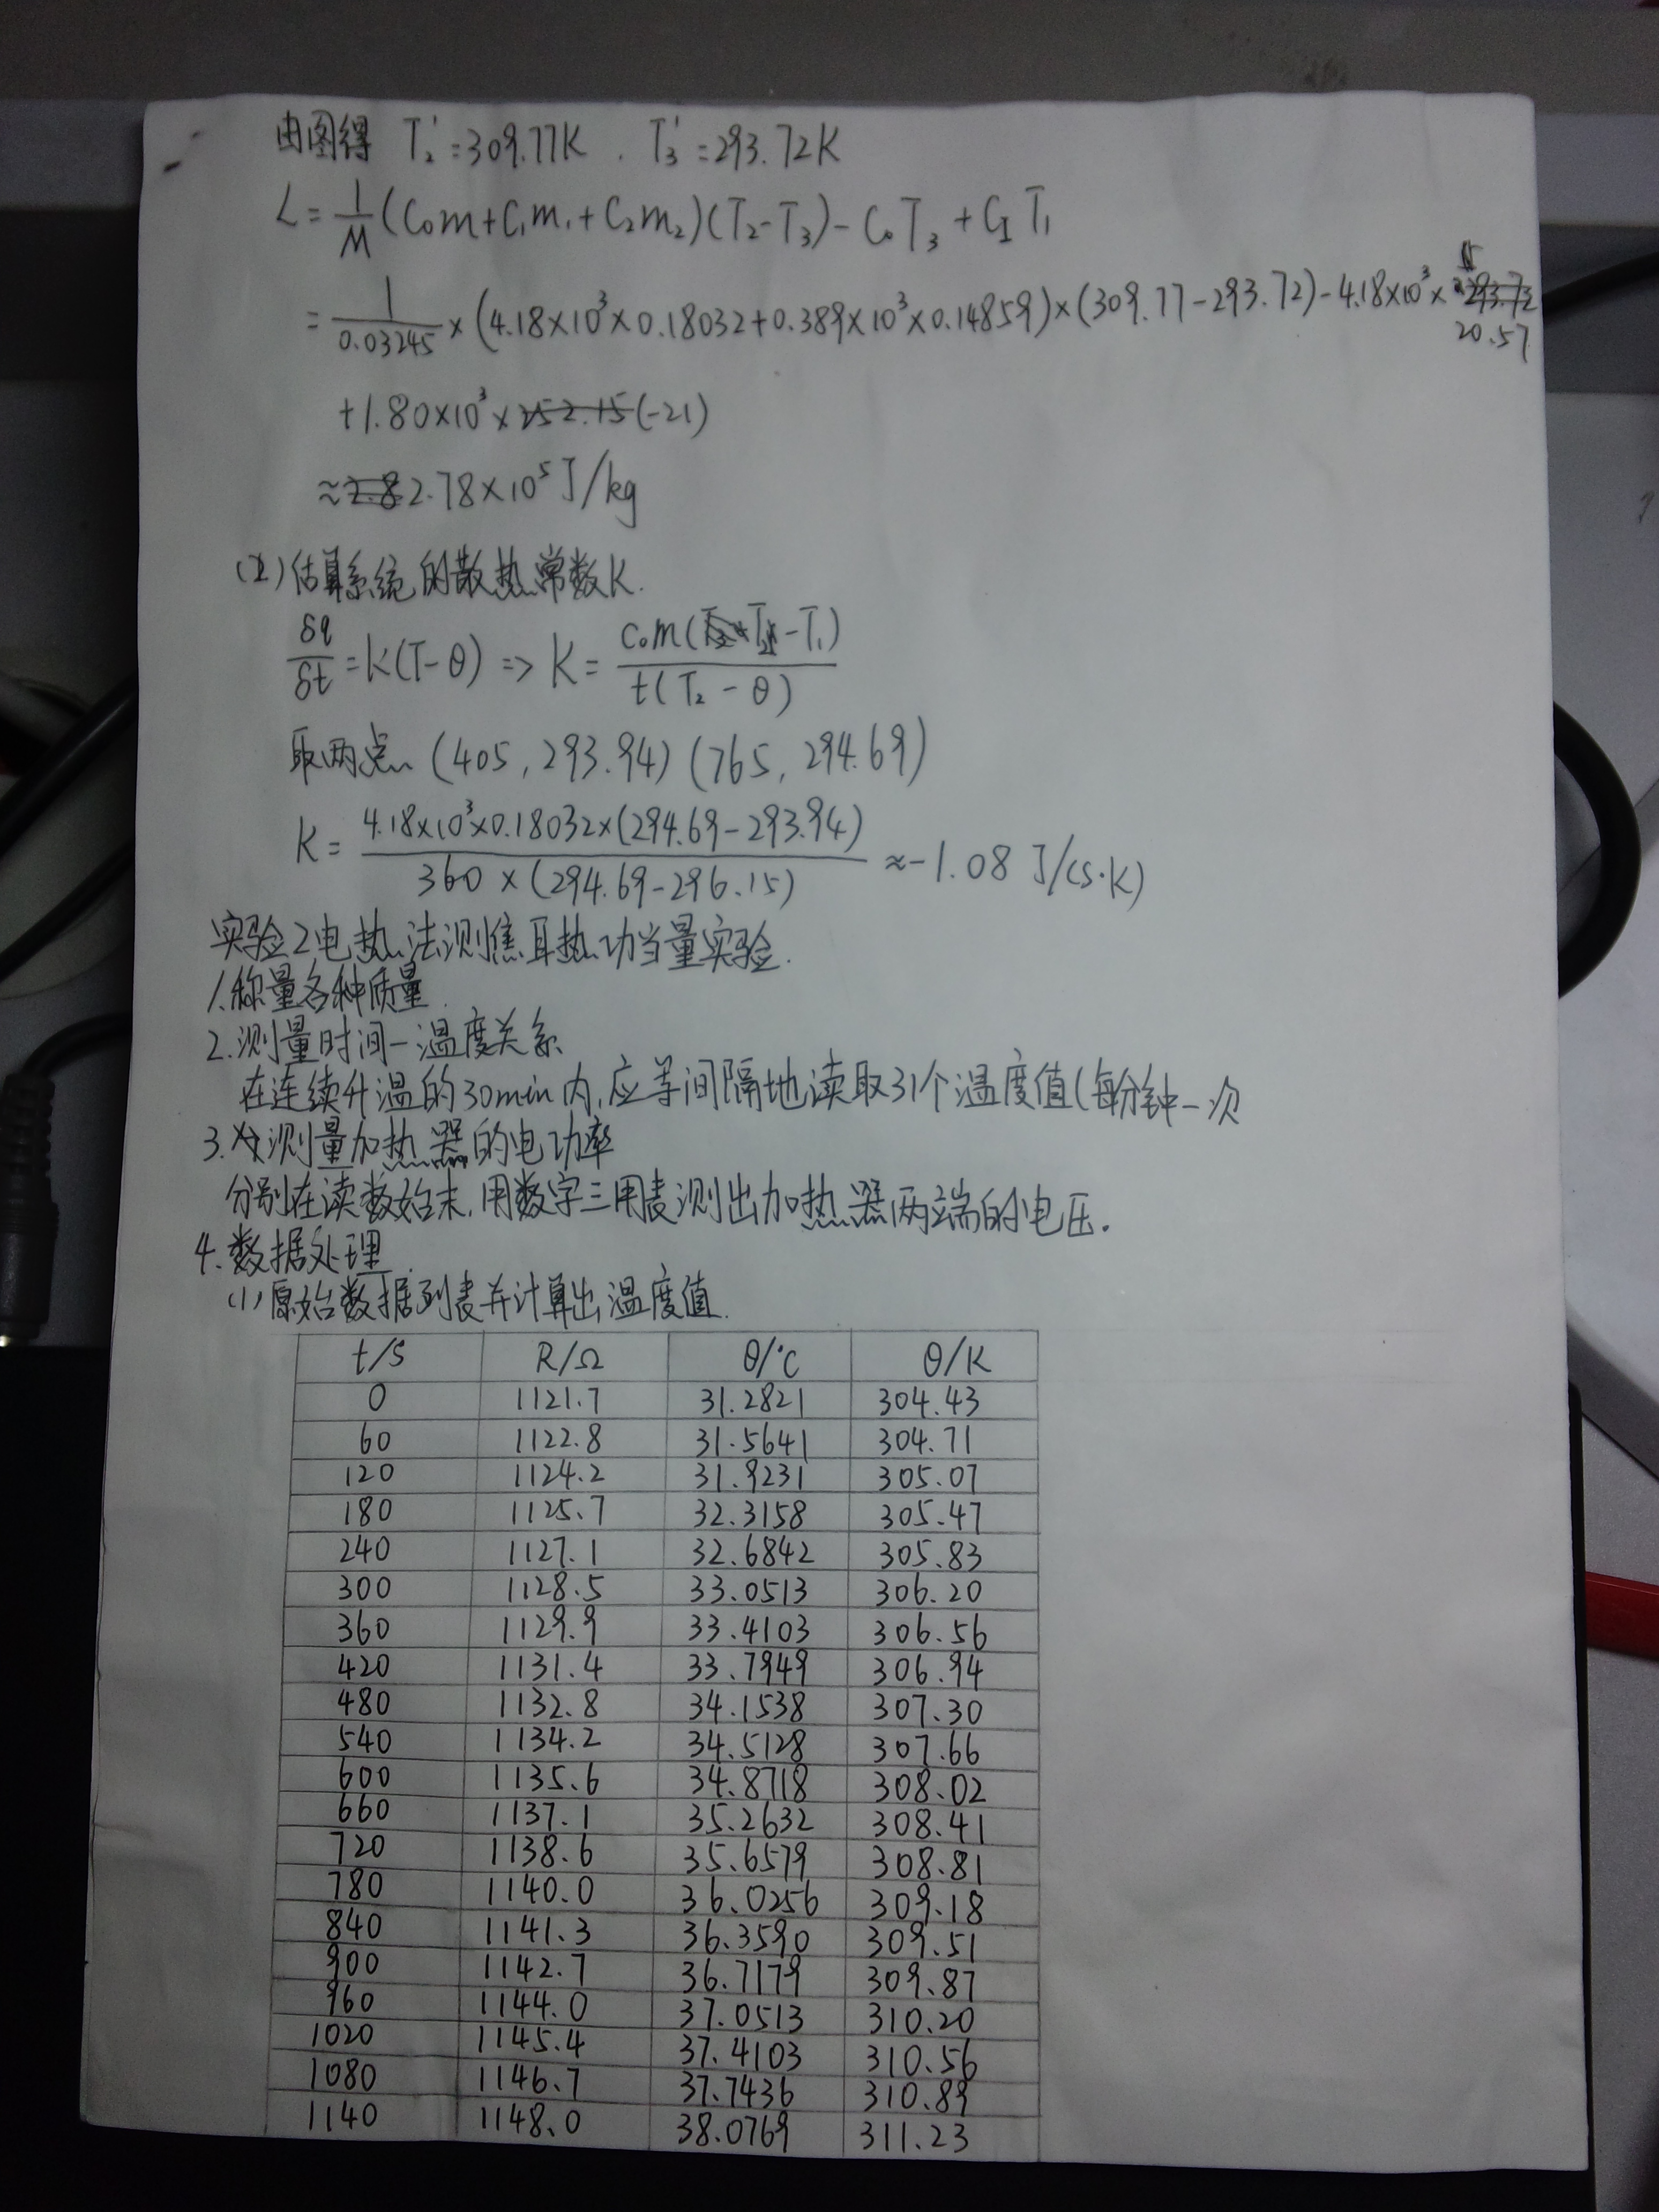 由图得 T₂'=309.77K . T₃'=293.72K
L=1/M(C₀m+C₁m₁+C₂m₂)(T₂-T₃)-C₀T₃+C_IT₁
=1/0.03245×(4.18×10³×0.18032+0.389×10³×0.14859)×(309.77-293.72)-4.18×10³×293.72
20.57
+1.80×10³×252.15(-21)
≈2.8 2.78×10⁵J/kg
(2)估算系统的散热常数K.
δq/δt=K(T-θ)=>K=C₀m(T₂-T₁)/t(T₂-θ)
取两点(405,293.94)(765,294.69)
K=4.18×10³×0.18032×(294.69-293.94)/360×(294.69-296.15)≈-1.08 J/(s·K)
实验2电热法测焦耳热功当量实验.
1.称量各种质量.
2.测量时间-温度关系
在连续升温的30min内,应等间隔地读取31个温度值(每分钟一次
3.测量加热器的电功率
分别在读数始末,用数字三用表测出加热器两端的电压.
4.数据处理.
(1)原始数据列表并计算出温度值.
t/s R/Ω θ/℃ θ/K
0 1121.7 31.2821 304.43
60 1122.8 31.5641 304.71
120 1124.2 31.9231 305.07
180 1125.7 32.3158 305.47
240 1127.1 32.6842 305.83
300 1128.5 33.0513 306.20
360 1129.9 33.4103 306.56
420 1131.4 33.7949 306.94
480 1132.8 34.1538 307.30
540 1134.2 34.5128 307.66
600 1135.6 34.8718 308.02
660 1137.1 35.2632 308.41
720 1138.6 35.6579 308.81
780 1140.0 36.0256 309.18
840 1141.3 36.3590 309.51
900 1142.7 36.7179 309.87
960 1144.0 37.0513 310.20
1020 1145.4 37.4103 310.56
1080 1146.7 37.7436 310.89
1140 1148.0 38.0769 311.23